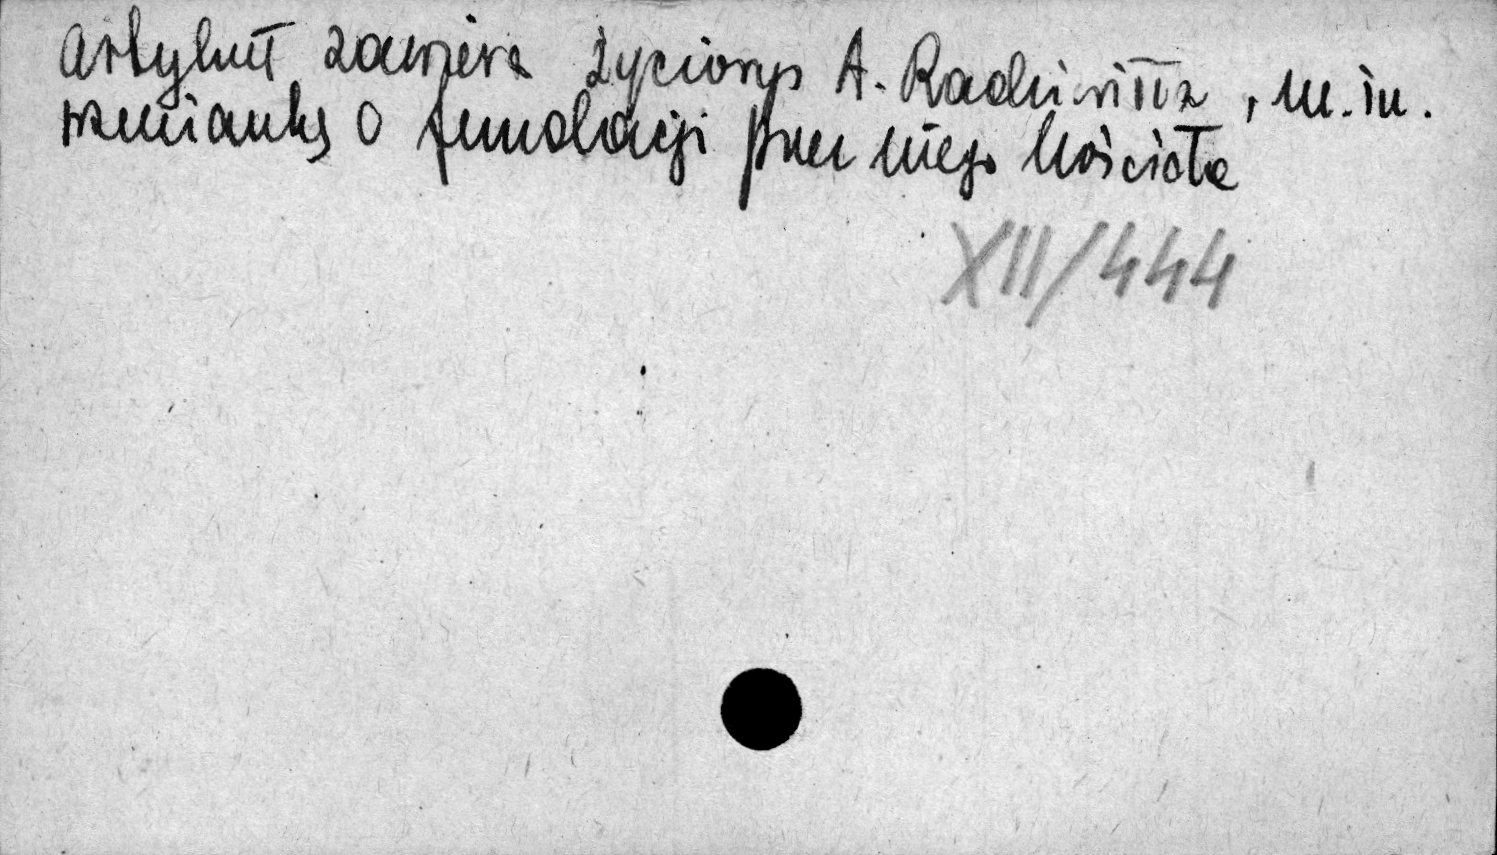 Artykuł zawiera życiorys A. Radziwiłła, m.in.
wzmiankę o fundacji przez niego kościoła
XII/444